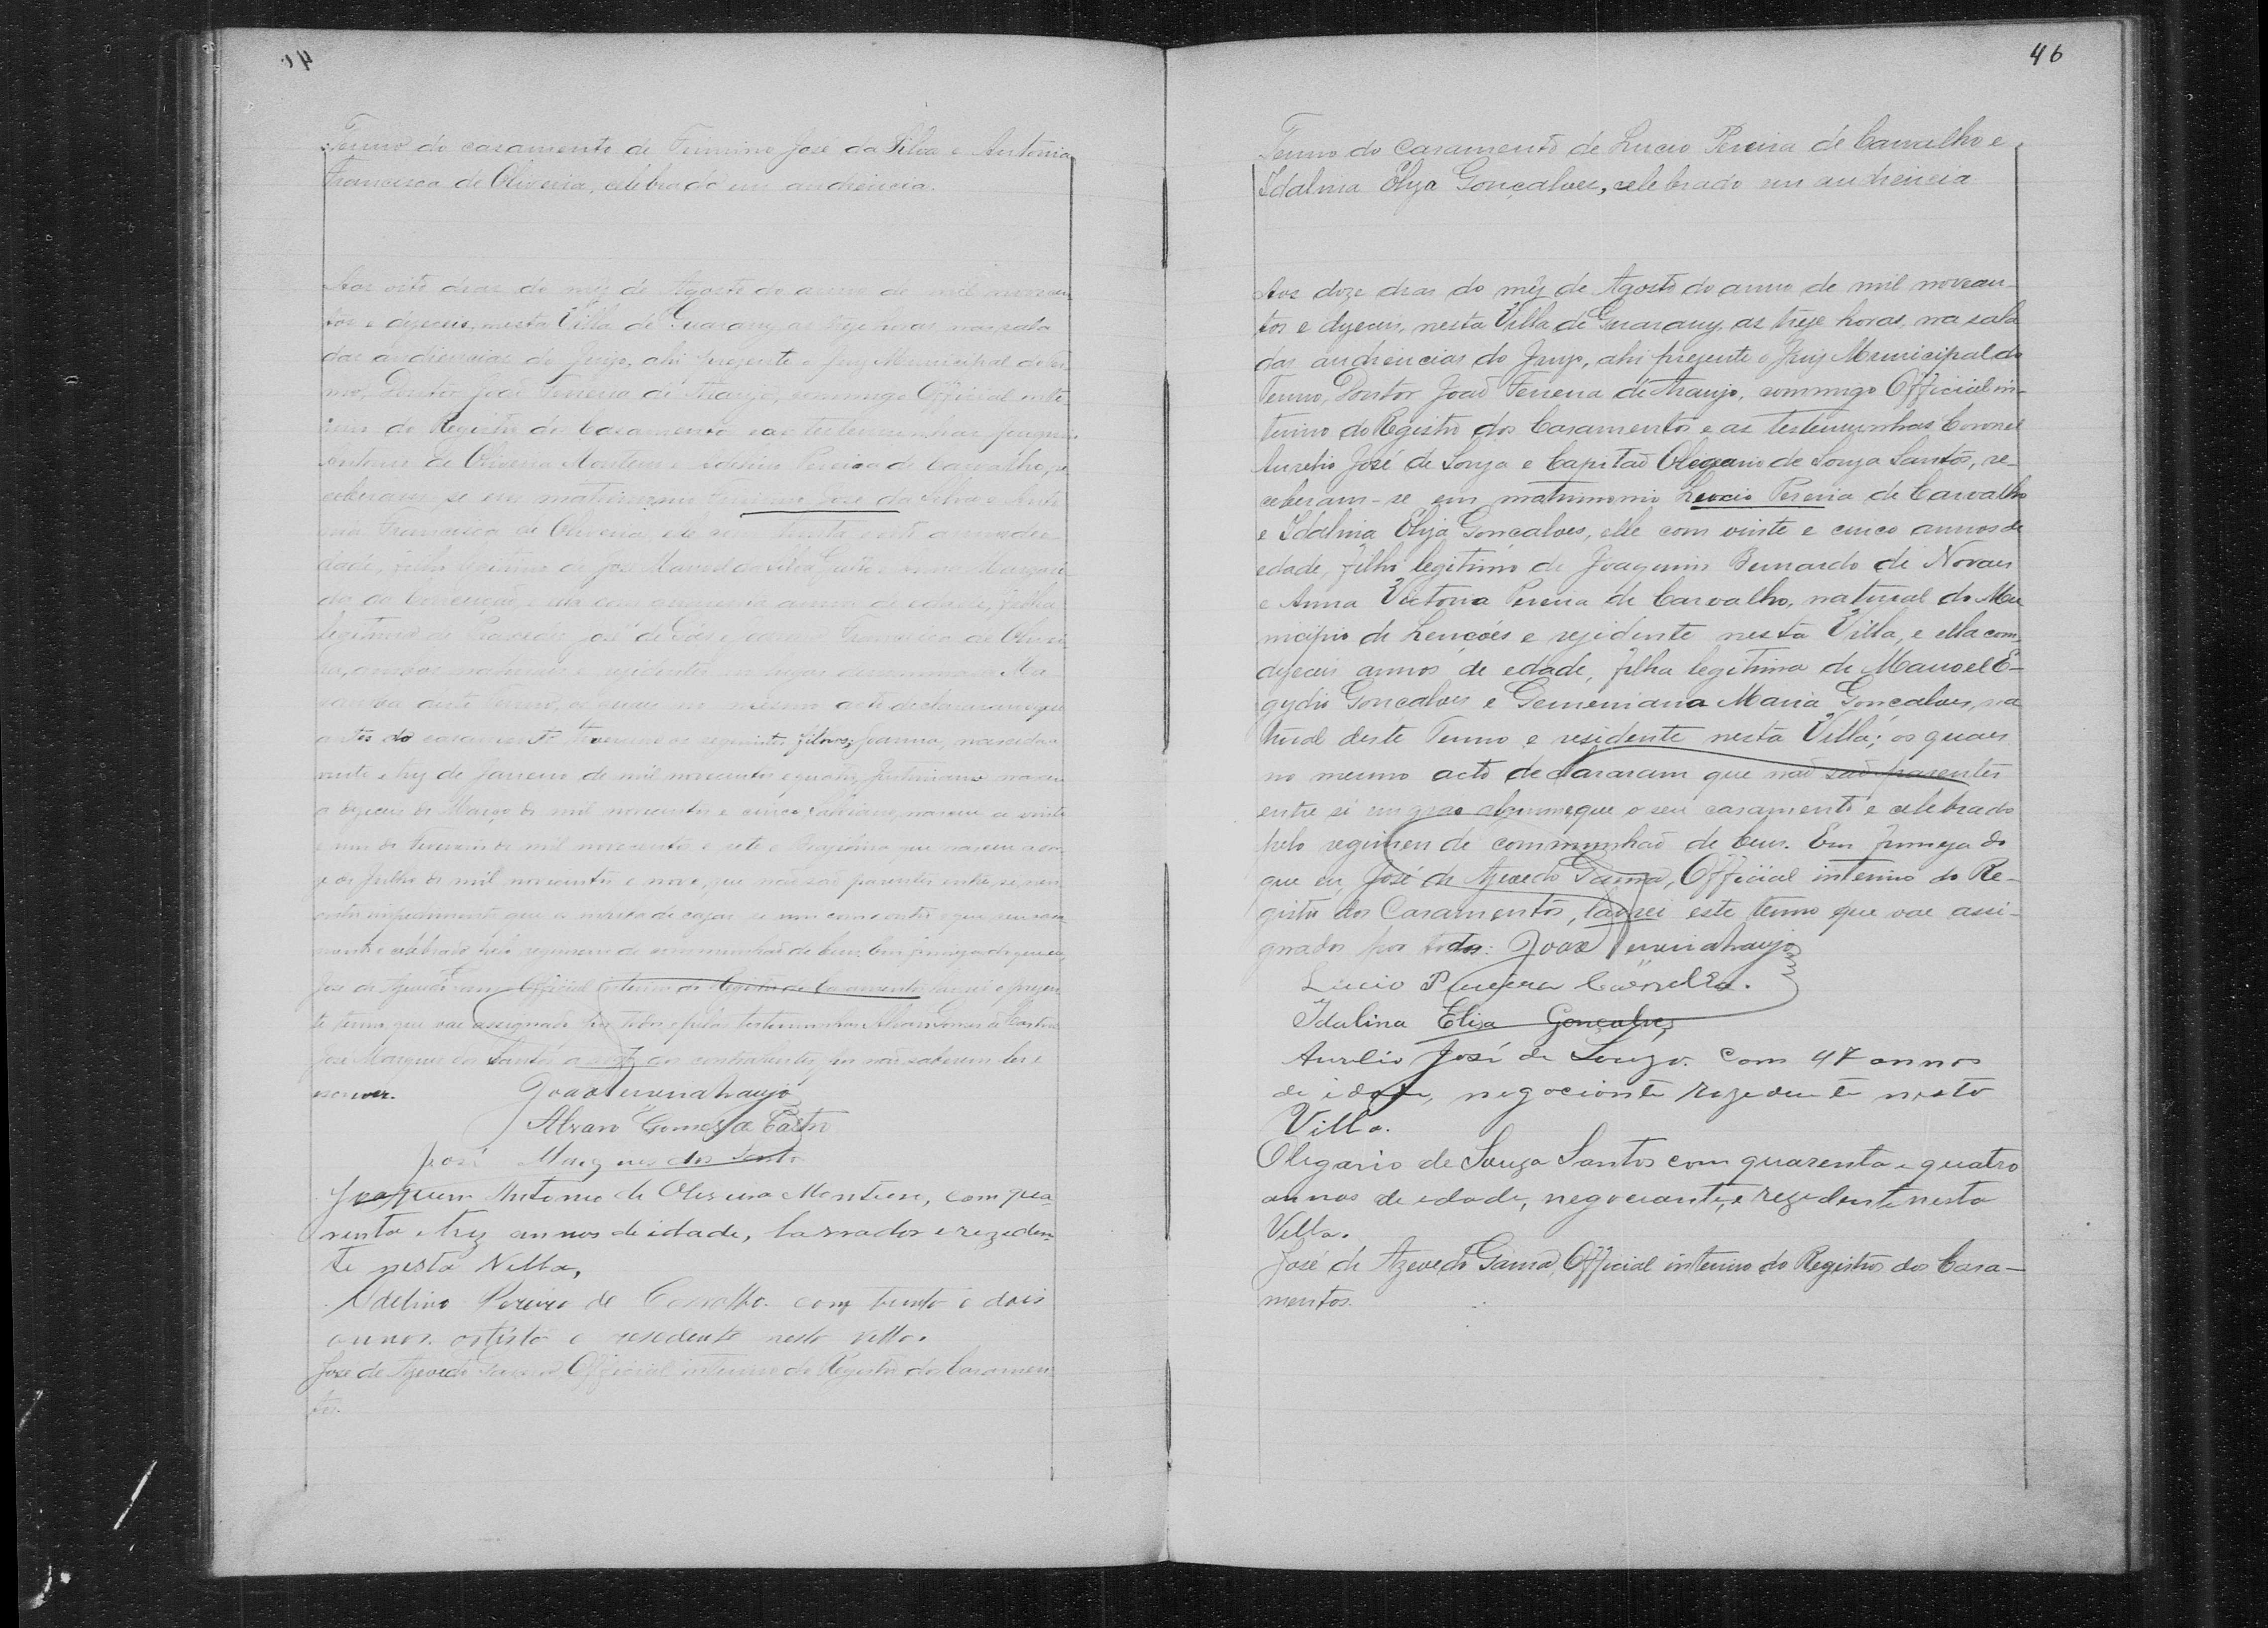 Termo do casamento de Firmino José da Silva e Antonia
Francisca de Oliveira, celebrado em audiencia.
Aos oito dias do mez de Agosto do anno de mil novecen
tos e dezeseis, nesta Villa de Guarany, as treze horas na sala
das audiencias do Juizo, ahi presente o Juiz Municipal do Ter
mo, Doutor João Ferreira de Araujo, commigo Official inte
rino do Registro de Casamentos e as testemunhas Joaquim
Antonio de Oliveira Monteiro e Adelino Pereira de Carvalho, re
ceberam-se em matrimonio Firmino José da Silva e Anto
nia Francisca de Oliveira, elle com trinta e annos de e
dade, filho legitimo de José Manoel da Silva e Margari
da da Conceição, e ella com annos de edade, filha
legitima de José de Góes e Joanna Francisca de Olivei
ra, ambos naturaes e residentes no lugar denominado
deste termo, os quaes no mesmo acto declararam que
antes do casamento tiveram os seguintes filhos; Joanna, nascida a
vinte e trez de Janeiro de mil novecentos e quatro, Justiniano nasceu
a dezeseis de Março de mil novecentos e cinco, nasceu a vinte
e um de Fevereiro de mil novecentos e sete e que nasceu a
de Julho de mil novecentos e nove, que não são parentes entre si, nem
outro impedimento que os inhiba de cazar-se um com o outro e que seu casa
mento é celebrado pelo regimen de communhão de bens. Em firmeza do que eu,
José de Azevedo Gama Official interino do Registro de Casamentos lavrei o presen
te termo, que vae assignado por todos e pelas testemunhas Alvaro Gomes de Castro
José Marques dos Santos a rogo dos contrahentes por não saberem ler e
escrever. João Ferreira Araujo
Alvaro Gomes de Castro
José Marques dos Santo
Joaquim Antonio de Oliveira Monteiro, com qua
renta e trez annos de idade, lavrador e reziden
te nesta Villa,
Adelino Pereira de Carvalho com trinta e dois
annos artista e residente nesta villa.
José de Azevedo Gama Official interino do Registro dos Casamen
tos.
46
Termo do Casamento de Lucio Pereira de Carvalho e
Idalina Eliza Gonçalves, celebrado em audiencia
Aos doze dias do mez de Agosto do anno de mil novecen-
tos e dezeseis, nesta Villa de Guarany, as treze horas, na sala
das audiencias do Juizo, ahi presente o Juiz Municipal do
Termo, Doutor João Ferreira de Araujo, commigo Official in-
terino do Registro dos Casamentos e as testemunhas Coronel
Aurelio José de Souza e Capitão Olegario de Souza Santos, re-
ceberam-se em matrimonio Lucio Pereira de Carvalho
e Idalina Eliza Gonçalves, elle com vinte e cinco annos de
edade, filho legitimo de Joaquim Bernardo de Novaes
e Anna Victoria Pereira de Carvalho, natural do Mu
nicipio de Lençóes e rezidente nesta Villa, e ella com
dezeseis annos de edade, filha legitima de Manoel E-
gydio Gonçalves e Geminiana Maria Gonçalves, na
tural deste Termo e residente nesta Villa; os quaes
no mesmo acto declararam que não são parentes
entre si em grao algum e que o seu casamento é celebrado
pelo regimen de communhão de bens. Em firmeza do
que eu, José de Azevedo Gama, Official interino do Re-
gistro dos Casamentos, lavrei este termo que vae assi-
gnado por todos: João Ferreira Araujo
Lucio Pereira Carvalho.
Idalina Elisa Gonçalves
Aurelio José de Souza. Com 47 annos
de idade, negociante rezidente nesta
Villa.
Olegario de Souza Santos com quarenta e quatro
annos de edade, negociante, e rezidente nesta
Villa.
José de Azevedo Gama, Official interino do Registro dos Casa-
mentos.